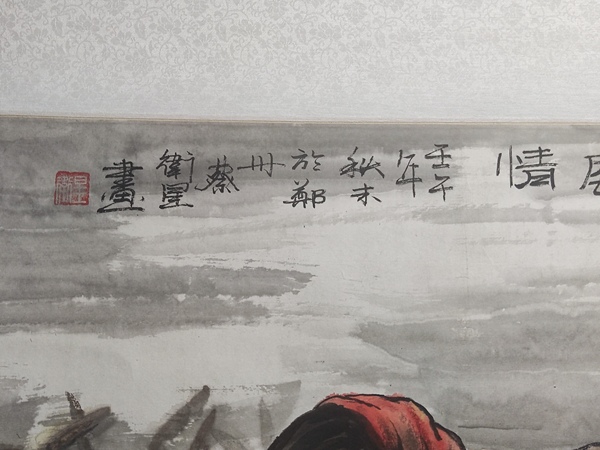 情
壬午
年
秋末
於鄭
州
蔡
衛星
畫